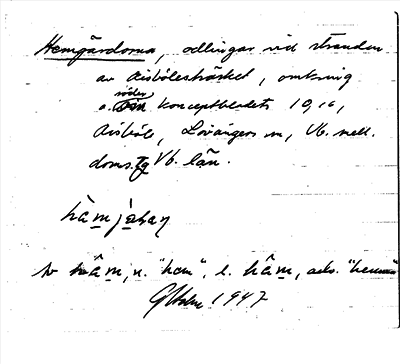 Hemgärdorna, odlingar vid stranden
av Aisböleträsket, omkring
söder
o. konceptbladets 10, 16,
Aisböle, Lövångers sn, Vb. mell.
doms. Vb. län.
hàmjahaŋ
hâm, n. "hem", l. hâm, adv. "hemma"
GHolm 1947